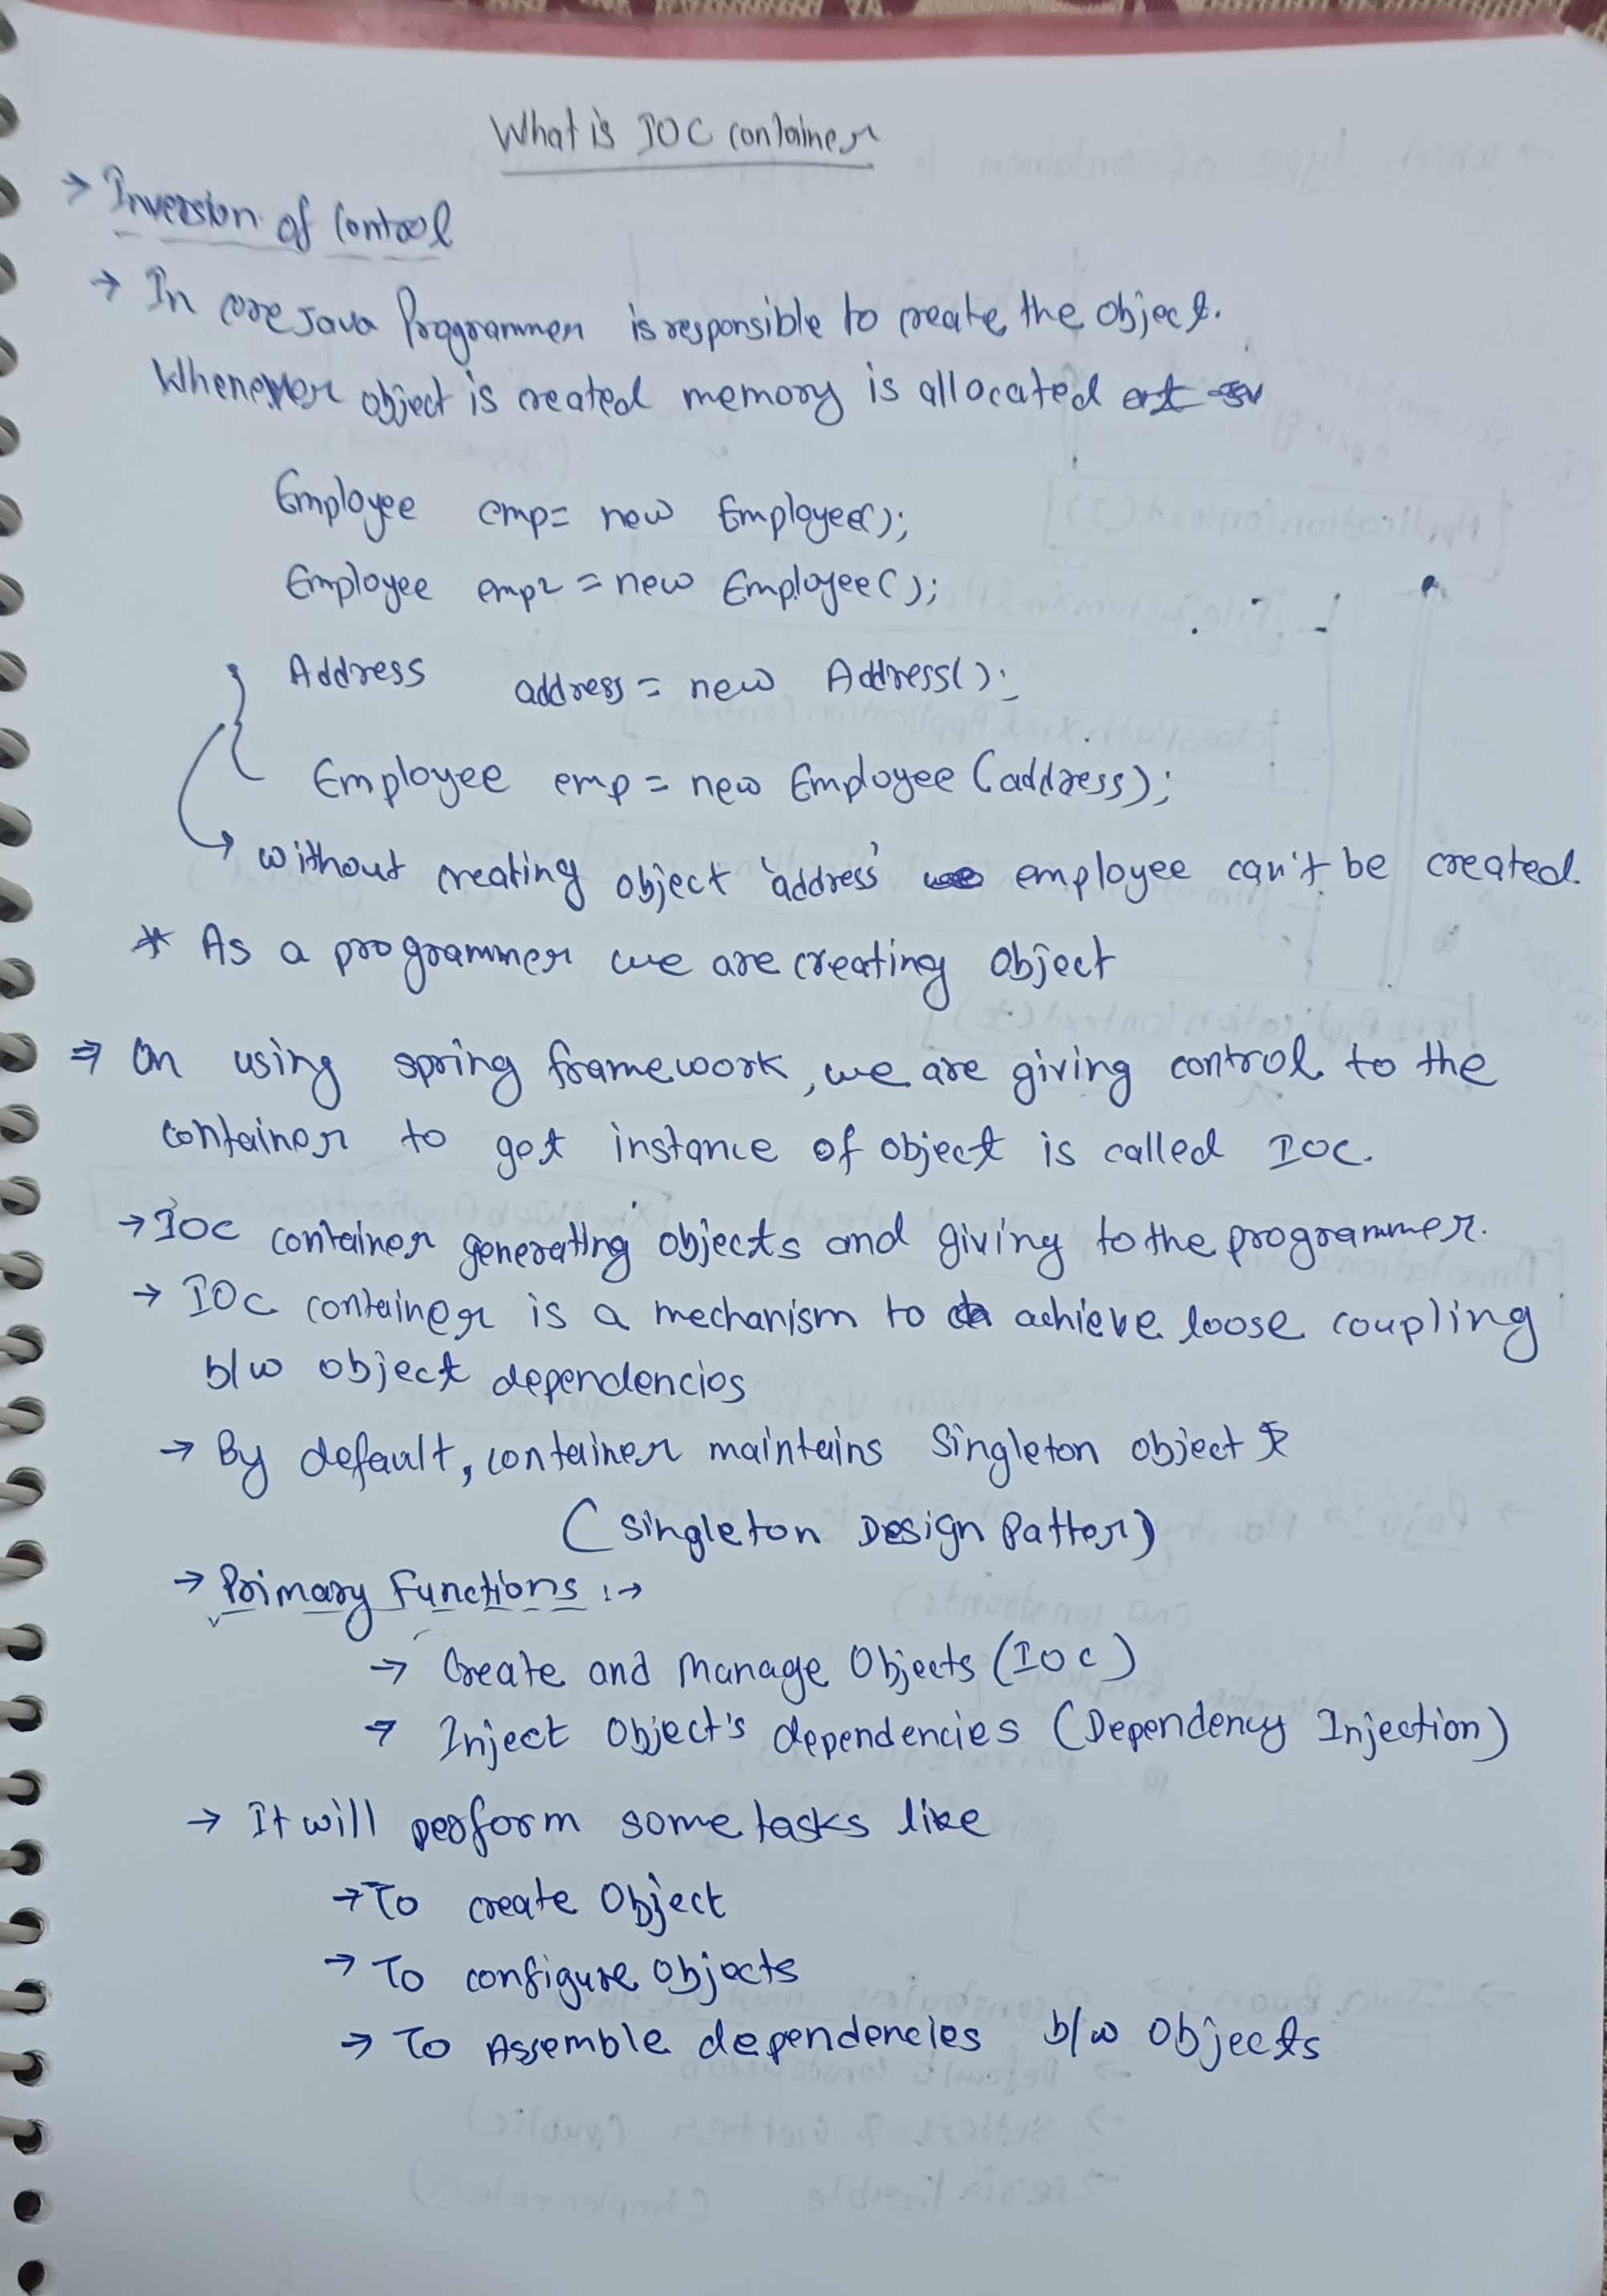 What is IOC container
→ Inversion of Control
→ In core Java Programmer is responsible to create the object.
Whenever object is created memory is allocated
Employee emp = new Employee();
Employee emp2 = new Employee();
Address address = new Address();
Employee emp = new Employee (address);
→ without creating object 'address' employee can't be created.
* As a programmer we are creating object
⇒ On using spring framework, we are giving control to the
container to get instance of object is called IOC.
→ IOC container generating objects and giving to the programmer.
→ IOC container is a mechanism to achieve loose coupling
b/w object dependencies
→ By default, container maintains Singleton object
(Singleton Design Patter)
→ Primary Functions :→
→ Create and Manage Objects (IOC)
→ Inject Object's dependencies (Dependency Injection)
→ It will perform some tasks like
→ To create Object
→ To configure Objects
→ To Assemble dependencies b/w Objects